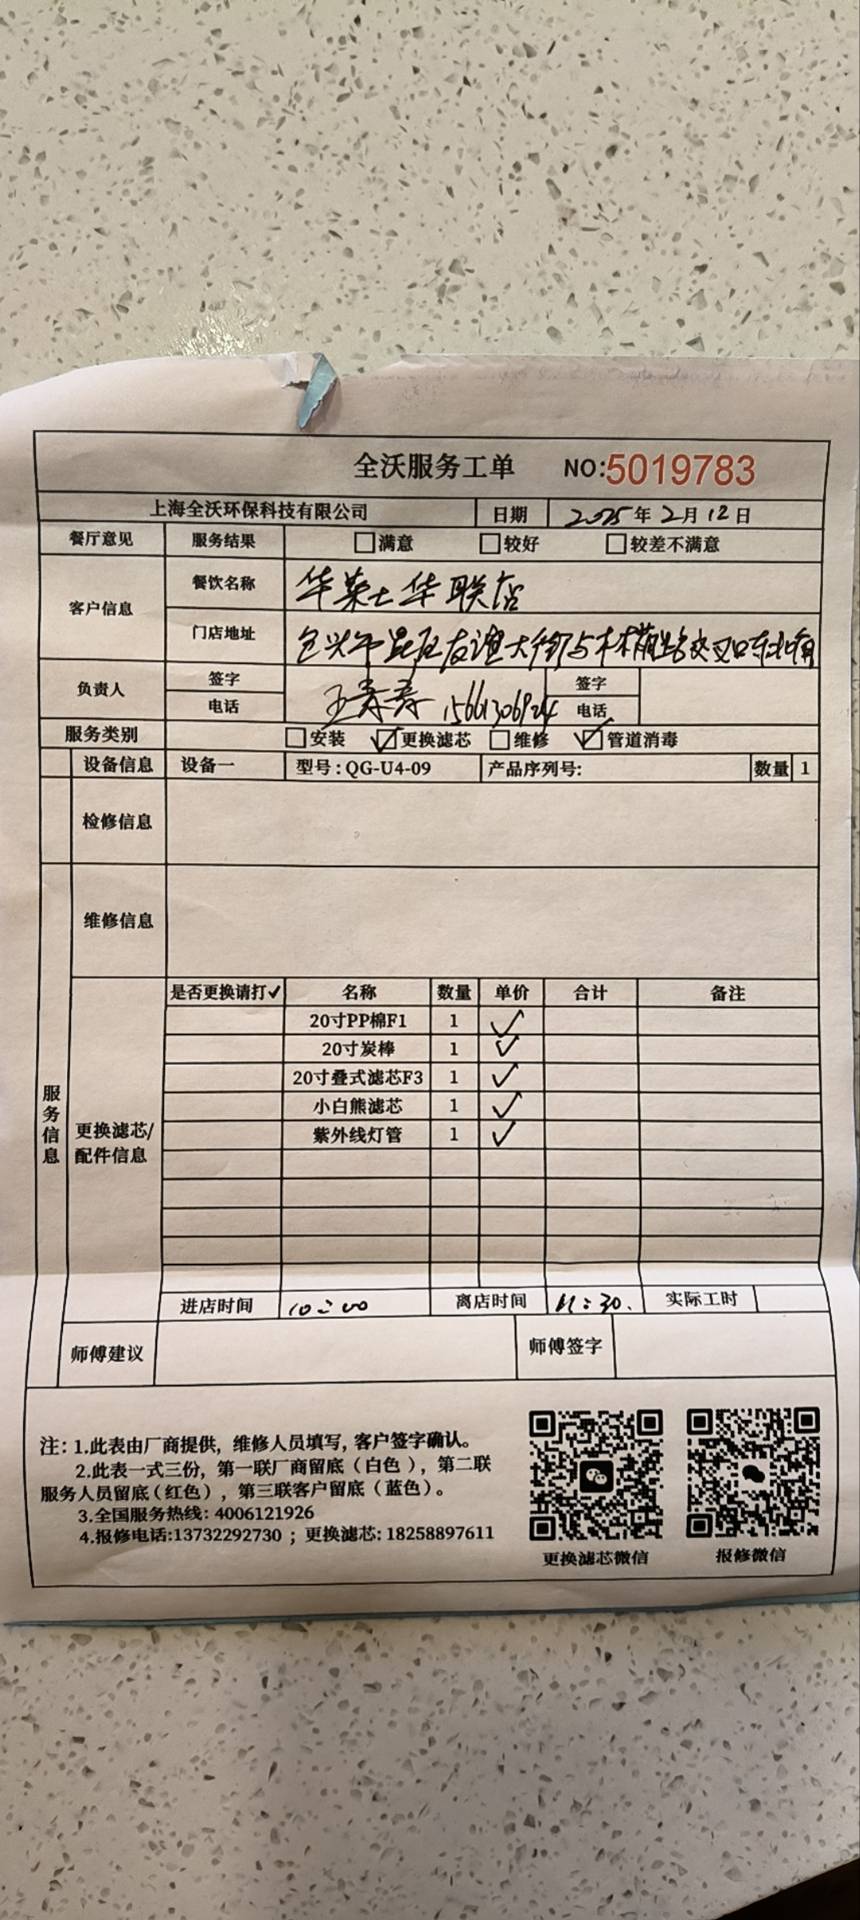 全沃服务工单 NO:5019783
上海全沃环保科技有限公司 日期 2025年2月12日
餐厅意见 服务结果 满意 较好 较差不满意
客户信息 餐饮名称 华莱士华联店
门店地址 友谊大街与 路交叉口东北角
负责人 签字 签字
电话 15661306924 电话
服务类别 安装 更换滤芯 维修 管道消毒
设备信息 设备一 型号:QG-U4-09 产品序列号: 数量 1
检修信息
维修信息
服务信息
更换滤芯/
配件信息
是否更换请打✓ 名称 数量 单价 合计 备注
20寸PP棉F1 1 ✓
20寸炭棒 1 ✓
20寸叠式滤芯F3 1 ✓
小白熊滤芯 1 ✓
紫外线灯管 1 ✓
进店时间 10:00 离店时间 11:30. 实际工时
师傅建议 师傅签字
注: 1.此表由厂商提供, 维修人员填写, 客户签字确认。
2.此表一式三份, 第一联厂商留底（白色）, 第二联
服务人员留底(红色）, 第三联客户留底（蓝色）。
3.全国服务热线: 4006121926
4.报修电话:13732292730 ; 更换滤芯: 18258897611
更换滤芯微信 报修微信